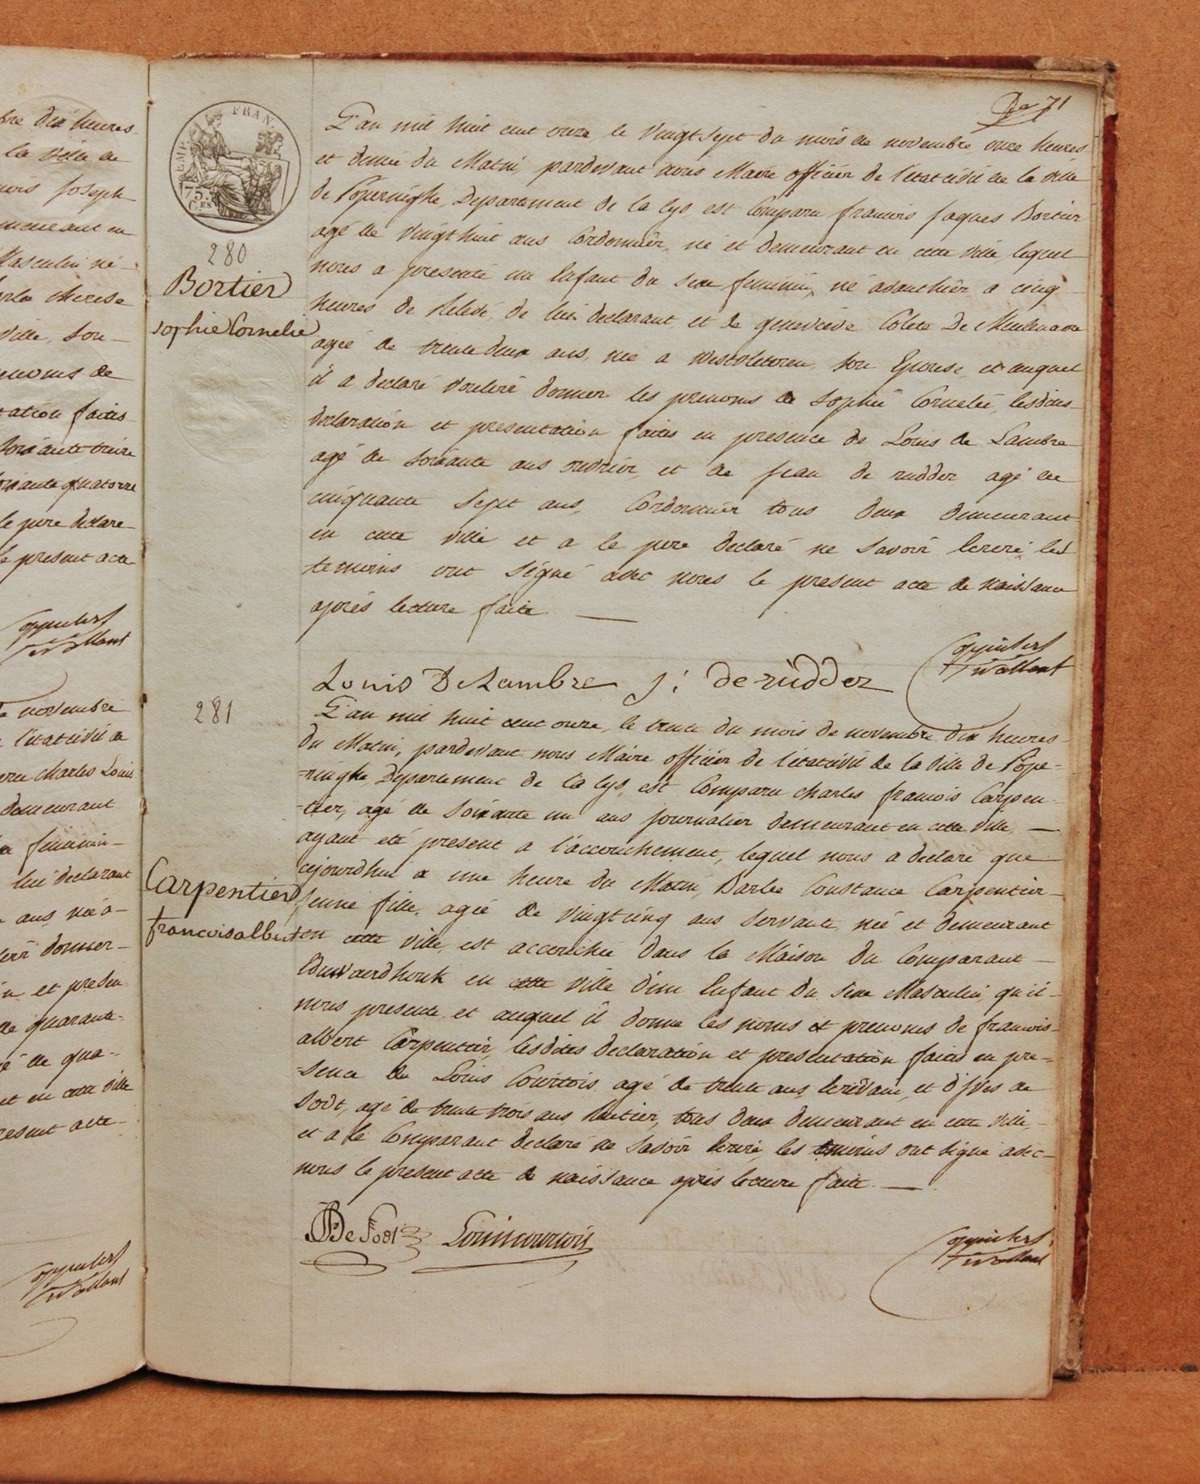 bre dix heures
la ville de
Joseph
Masculin né
therese
ville, son
prenoms de
tation faites
soixante treize
soixante quatorze
le pere declare
le present acte
novembre
l'etat civil de
Charles Louis
demeurant
feminin
lui declarant
ans, née a
donner
et presen
de quarante
agé de qua-
et en cette ville
present acte
De 71
EMPIRE FRANÇAIS
75
CES
280
Bortier
sophie Cornelie
L'an mil huit cent onze, le vingt sept du mois de novembre onze heures
et demie du Matin, pardevant nous Maire officier de l'état civil de la ville
de Poperinghe Departement de la lys est Comparu francois Jaques Bortier
agé de vingt huit ans Cordonnier, né et demeurant en cette ville, lequel
nous a presenté un Enfant du sexe feminin, né a cinq
heures de relevé, de lui declarant et de genevieve Colete De Meulenaere
agée de trente deux ans, née a westvleteren son Epouse, et auquel
il a declaré vouloir donner les prenoms de Sophie Cornelie, lesdites
declaration et presentation faites en presence de Louis de Lambre
agé de soixante ans ouvrier, et de jean de rudder agé de
cinquante sept ans, Cordonnier tous deux demeurant
en cette ville et a le pere declaré ne savoir Ecrire, les
temoins ont signé avec nous le present acte de naissance
après lecture faite
Louis De Lambre j: de rüdder
281
Carpentier
francois albert
L'an mil huit cent onze, le trente du mois de novembre dix heures
du Matin, pardevant nous Maire officier de l'état civil de la ville de Pope-
-ringhe Departement de la lys, est Comparu charles francois Carpen-
-tier, agé de soixante un ans journalier demeurant en cette ville,
ayant eté present a l'accouchement, lequel nous a declaré que
cejourdhui a une heure du Matin, Barbe Constance Carpentier
jeune fille, agée de vingt cinq ans servante, née et demeurant
en cette ville, est accouchée dans la Maison du Comparant
en cette ville d'un Enfant du sexe Masculin, qu'il
nous presente, et auquel il donne les noms et prenoms de francois
albert Carpentier, lesdites declaration et presentation faites en pre-
-sence de Louis Courtois agé de trente ans Ecrivain, et d'ives de
Sodt, agé de trente trois ans huitier, tous deux demeurant en cette ville,
et a le Comparant declaré ne savoir Ecrire, les temoins ont signé avec
nous le present acte de naissance après lecture faite.
De Sodt Louis courtois